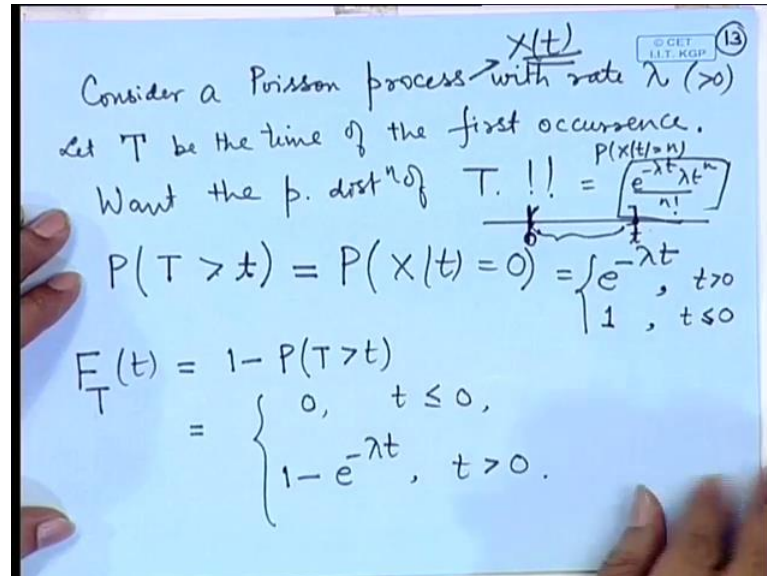 X(t)
© CET
I.I.T. KGP
13
Consider a Poisson process with rate λ (>0)
Let T be the time of the first occurrence.
P(X(t)=n)
Want the p. distⁿ of T. !! = e^{-λt} λt^n / n!
0 t
P(T > t) = P(X(t) = 0) = { e^{-λt}, t>0
1, t≤0
F_T(t) = 1 - P(T>t)
= { 0, t ≤ 0,
1 - e^{-λt}, t > 0.